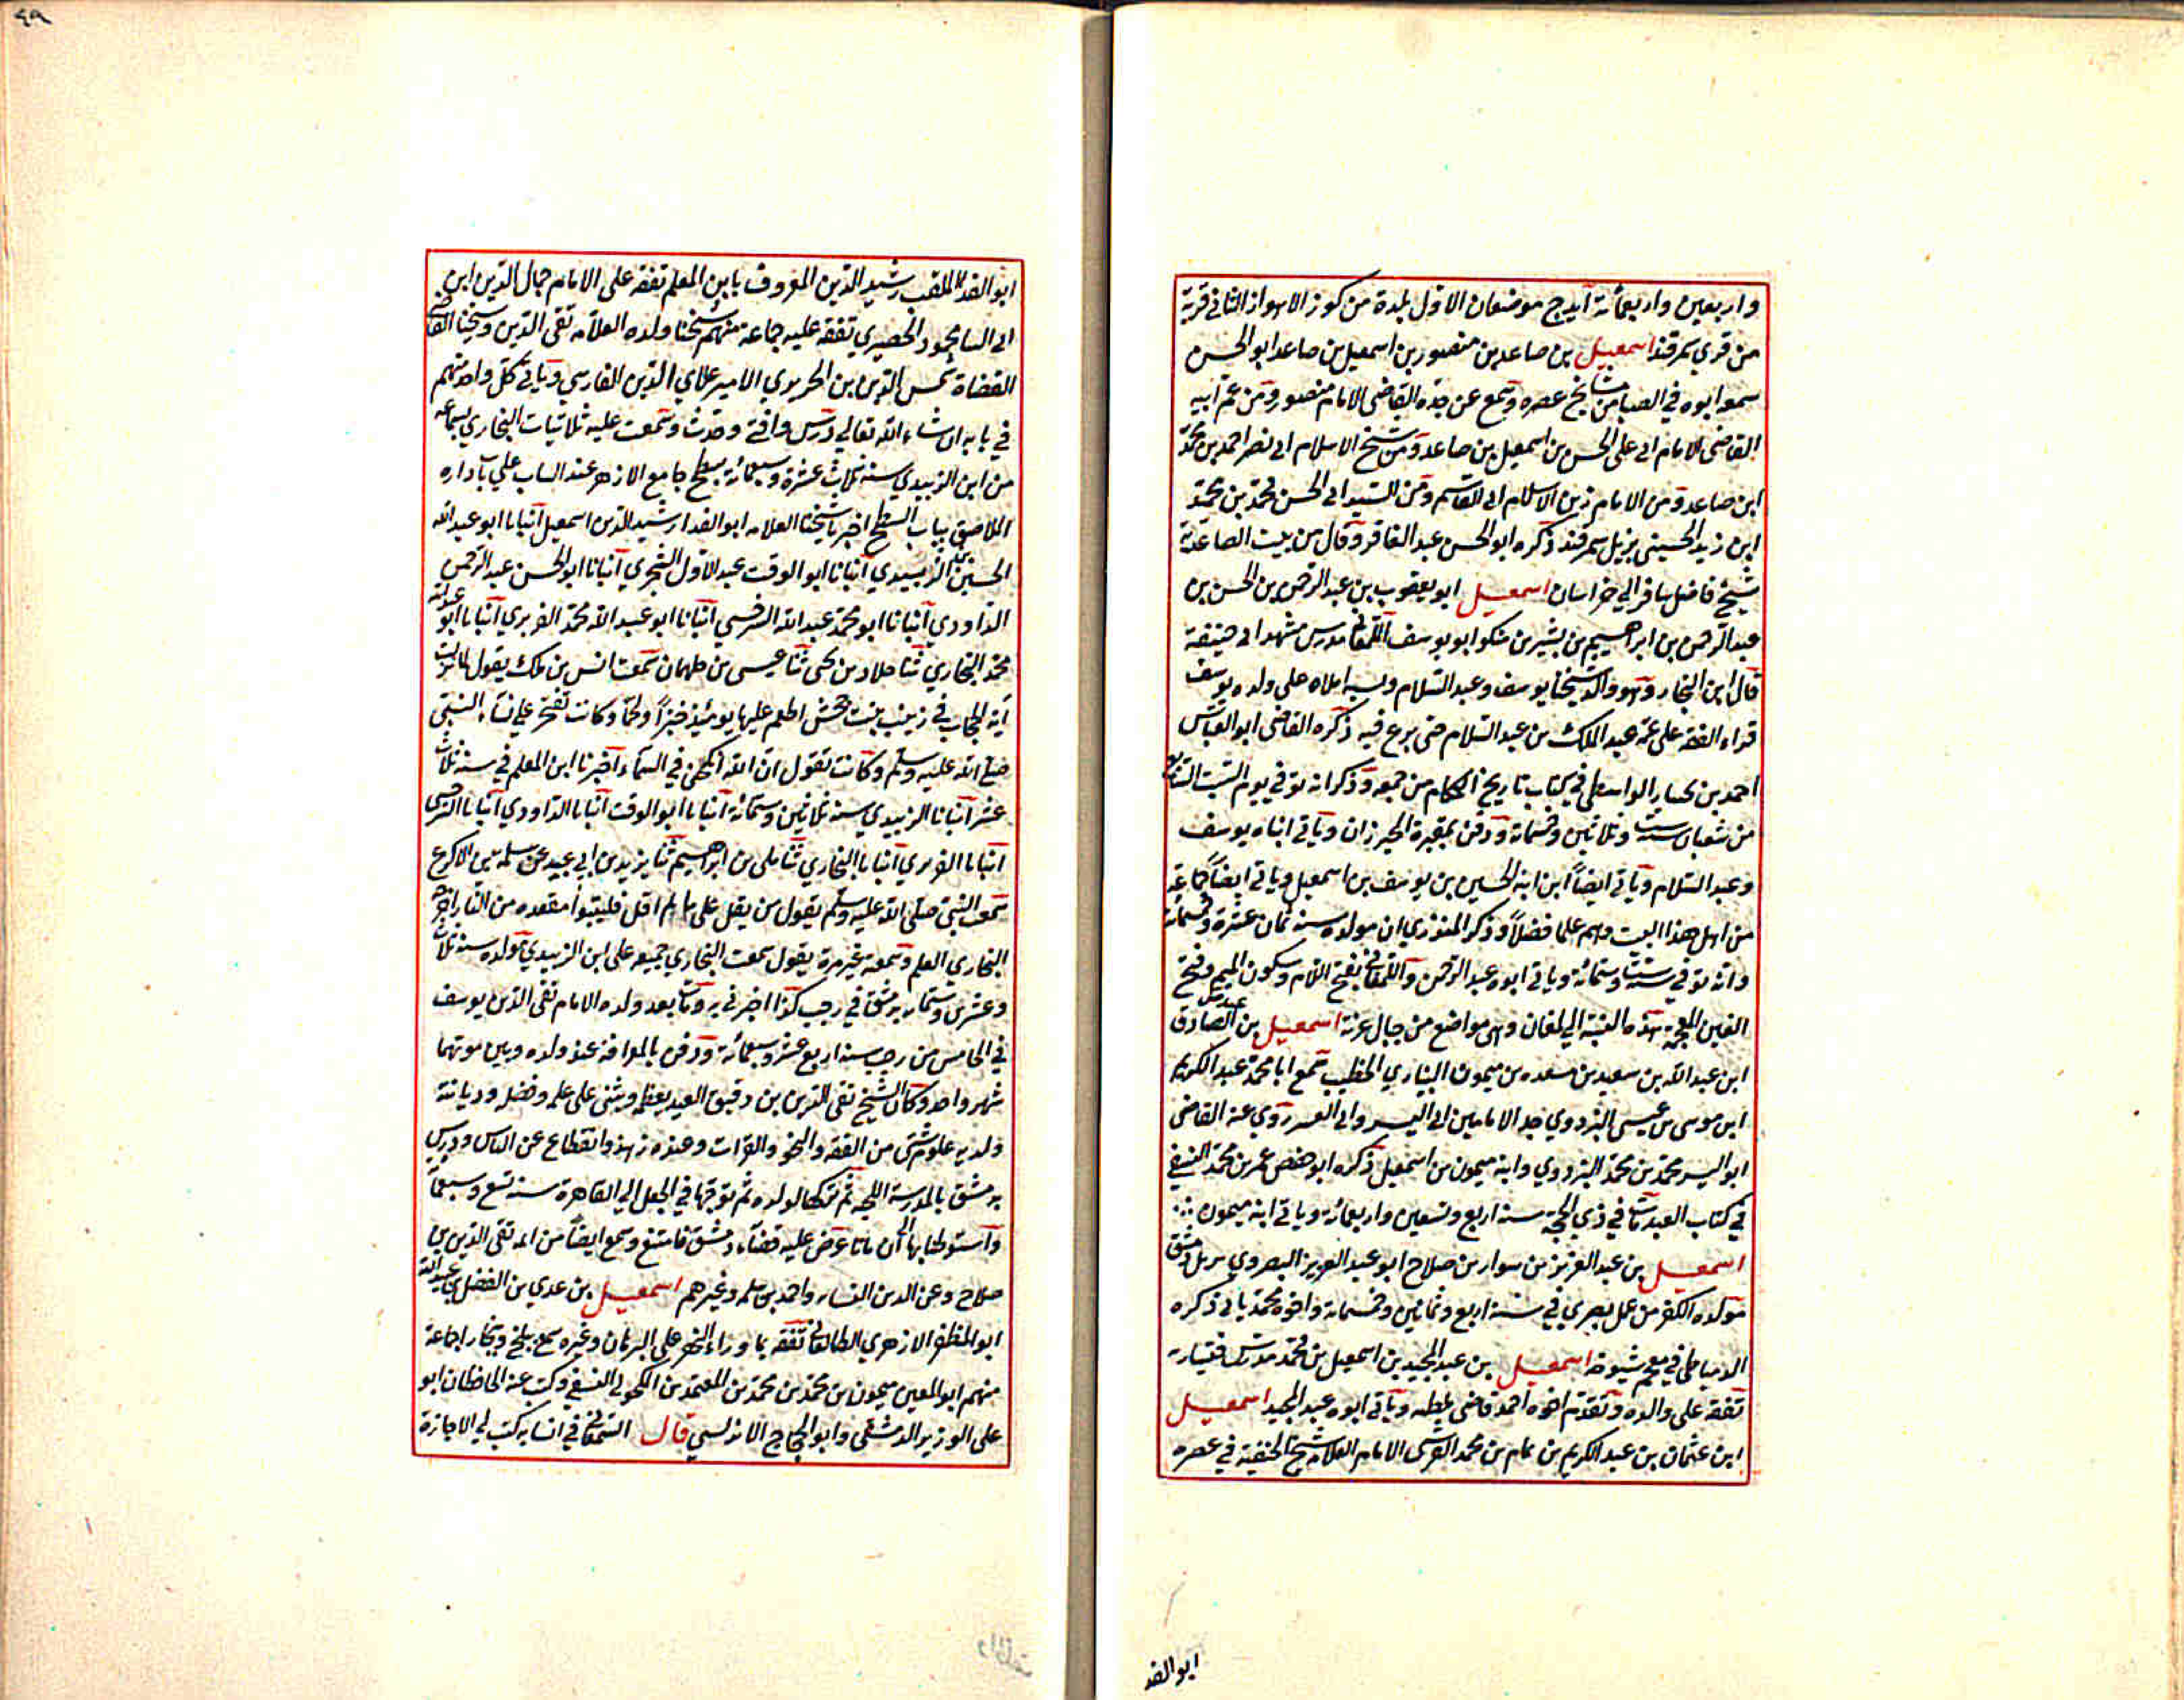 واربعين واربعمائة ايدج موضعان الاول بلدة من كور الاهواز الثاني قرية
من قري سمرقند اسمعيل بن صاعد بن منصور بن اسمعيل بن صاعد ابو الحسن
سمعه ابوه في الصبا من مشايخ عصره وسمع عن جده القاضي الامام منصور ومن عم ابيه
القاضي الامام ابي علي الحسن بن اسمعيل بن صاعد ومن شيخ الاسلام ابي نصر احمد بن محمد
ابن صاعد ومن الامام زين الاسلام ابي القاسم ومن السيد ابي الحسن محمد بن محمد
ابن زيد الحسيني نزيل سمرقند ذكره ابو الحسن عبد الغافر وقال من بيت الصاعدية
شيخ فاضل سافر الي خراسان اسمعيل ابو يعقوب بن عبد الرحمن بن الحسن بن
عبد الرحمن بن ابراهيم بن بشير بن منكو ابو يوسف اللمغاني مدرس مشهد ابي حنيفة
قال ابن النجار وهو والد شيخنا يوسف وعبد السلام املاه علي ولده يوسف
قراء الفقه علي عمه عبد الملك بن عبد السلام حتى برع فيه ذكره القاضي ابو العباس
احمد بن بختيار الواسطي في كتاب تاريخ الحكام من جمعه وذكر انه توفي يوم السبت التاسع
من شعبان سنة ست وثلاثين وخمسمائة ودفن بمقبرة الخيزران وياتي ابناه يوسف
وعبد السلام وياتي ايضاً ابن ابنه الحسين بن يوسف بن اسمعيل وياتي ايضاً جماعة
من اهل هذا البيت وهم علما فضلاً وذكر المنذري ان مولده سنة ثمان عشرة وخمسمائة
وانه توفي سنة ستمائة وياتي ابوه عبد الرحمن واللمغاني بفتح اللام وسكون الميم وفتح
الغين المعجمة هذه النسبة الي لمغان وهي مواضع من جبال غزنة اسمعيل بن عبد الصادق
ابن عبد الله بن سعيد بن مسعده بن ميمون البياري الخطيب سمع ابا محمد عبد الكريم
ابن موسى بن عيسى البزدوي جد الامامين ابي اليسر وابي العسر روي عنه القاضي
ابو اليسر محمد بن محمد البزدوي وابنه ميمون بن اسمعيل ذكره ابو حفص عمر بن محمد النسفي
في كتاب القند مات في ذي الحجة سنة اربع وتسعين واربعمائة وياتي ابنه ميمون
اسمعيل بن عبد العزيز بن سوار بن صلاح ابو عبد العزيز البصروي نزيل دمشق
مولده الكفر من عمل بصري في سنة اربع وثمانين وخمسمائة واخوه محمد ياتي ذكره
الدمياطي في معجم شيوخه اسمعيل بن عبد المجيد بن اسمعيل بن محمد مدرس قيسارية
تفقه على والده وتقدم اخوه احمد قاضي ملطيه وياتي ابوه عبد المجيد اسمعيل
ابن عثمان بن عبد الكريم بن تمام بن محمد القرشي الامام العلامة شيخ الحنفية في عصره
ابو الفد
٤٩
ابو الفدا الملقب رشيد الدين المعروف بابن المعلم تفقه على الامام جمال الدين ابن
ابي الثنا محمود الحصيري تفقه عليه جماعة منهم شيخنا ولده العلامة تقي الدين وشيخنا القاضي
القضاة شمس الدين بن الحريري الامير علاي الدين الفارسي وياتي كل واحد منهم
في بابه ان شاء الله تعالي درس وافتى وحدث وسمعت عليه ثلاثيات البخاري بسماعه
من ابن الزبيدي سنة ثلاث عشرة وسبعمائة بسطح جامع الازهر عند الباب علي باب داره
الملاصق بباب السطح اخبرنا شيخنا العلامه ابو الفدا رشيد الدين اسمعيل انبانا ابو عبد الله
الحسين الزبيدي انبانا ابو الوقت عبد الاول السجزي انبانا ابو الحسن عبد الرحمن
الداودي انبانا ابو محمد عبد الله السرخسي انبانا ابو عبد الله محمد الفربري انبانا ابو عبد الله
محمد البخاري ثنا خلاد بن يحيى ثنا عيسى بن طهمان سمعت انس بن ملك يقول نزلت
آية الحجاب في زينب بنت جحش اطعم عليها يومئذ خبزاً ولحماً وكانت تفتخر علي نساء النبي
صلى الله عليه وسلم وكانت تقول ان الله انكحني في السماء اخبرنا ابن المعلم في سنة ثلاث
عشر انبانا الزبيدي سنة ثلاثين وستمائة انبانا ابو الوقت انبانا الداودي انبانا السرخسي
انبانا الفربري انبانا البخاري ثنا مكي بن ابراهيم ثنا يزيد بن ابي عبيد عن سلمة بن الاكوع
سمعت النبي صلى الله عليه وسلم يقول من يقل على ما لم اقل فليتبوأ مقعده من النار اخرجه
البخاري العلم وسمعته غير مرة يقول سمعت البخاري جميعه على ابن الزبيدي مولده سنة ثلاث
وعشرين وستمائة بدمشق في رجب كذا اخبرني به ومات بعد ولده الامام تقي الدين يوسف
في الخامس من رجب سنة اربع عشرة وسبعمائة ودفن بالقرافة عند ولده وبين موتهما
شهر واحد وكان الشيخ تقي الدين بن دقيق العيد يعظمه ويثني على علمه وفضله وديانته
ولديه علوم شتى من الفقه والنحو والقرات وعنده زهد وانقطاع عن الناس ودرس
بدمشق بالمدرسة البلخيه ثم تركها لولده ثم توجها في الجفل الي القاهرة سنة تسع وسبعمائة
واستوطنا بها الى ان ماتا عرض عليه قضاء دمشق فامتنع وسمع ايضاً من تقي الدين بن
صلاح وعن الدين النسابه واحمد بن سلمه وغيرهم اسمعيل بن عدي بن الفضل بن عبيد الله
ابو المظفر الازهري الطالقاني تفقه بما وراء النهر علي البرهان وغيره سمع ببلخ وبخارا جماعة
منهم ابو المعين ميمون بن محمد بن محمد بن المعتمد بن مكحول النسفي وكتب عنه الحافظان ابو
على الوزير الدمشقي وابو الحجاج الاندلسي قال السمعاني في انسابه كتب لي الاجازة